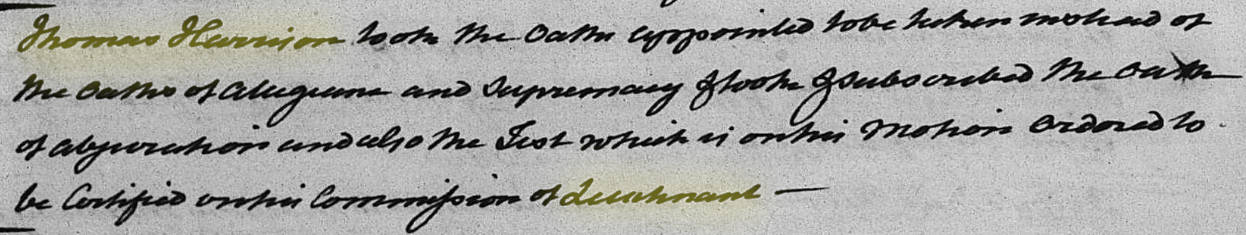 Thomas Harrison took the Oaths appointed to be taken instead of
the Oaths of Alegiance and Supremacy & took & Subscribed the Oath
of abjuration and also the Test which is on his Motion Ordered to
be Certified on his Commission of Lieutenant —